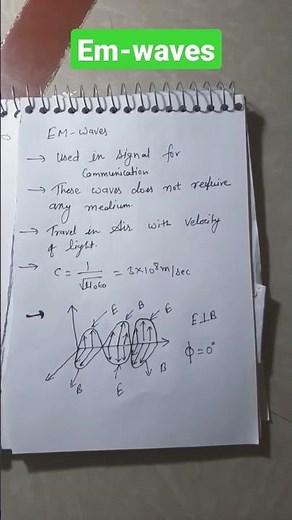 Em-waves
EM-waves
→ Used in signal for
Communication
→ These waves does not require
any medium.
→ Travel in Air with velocity
of light.
→ C = 1/√μ₀ε₀ = 3×10⁸m/sec
→ E B E
E⊥B
ϕ=0°
B E B